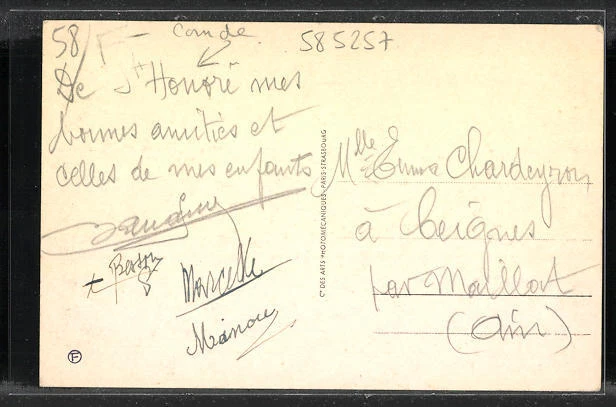 58/F
585257
De St Honoré mes
bonnes amitiés et
celles de mes enfants
Marcelle
Manou
Mlle Emma Chardeyron
à Ceignes
par Maillat
(Ain)
Cie DES ARTS PHOTOMÉCANIQUES-PARIS-STRASBOURG
F